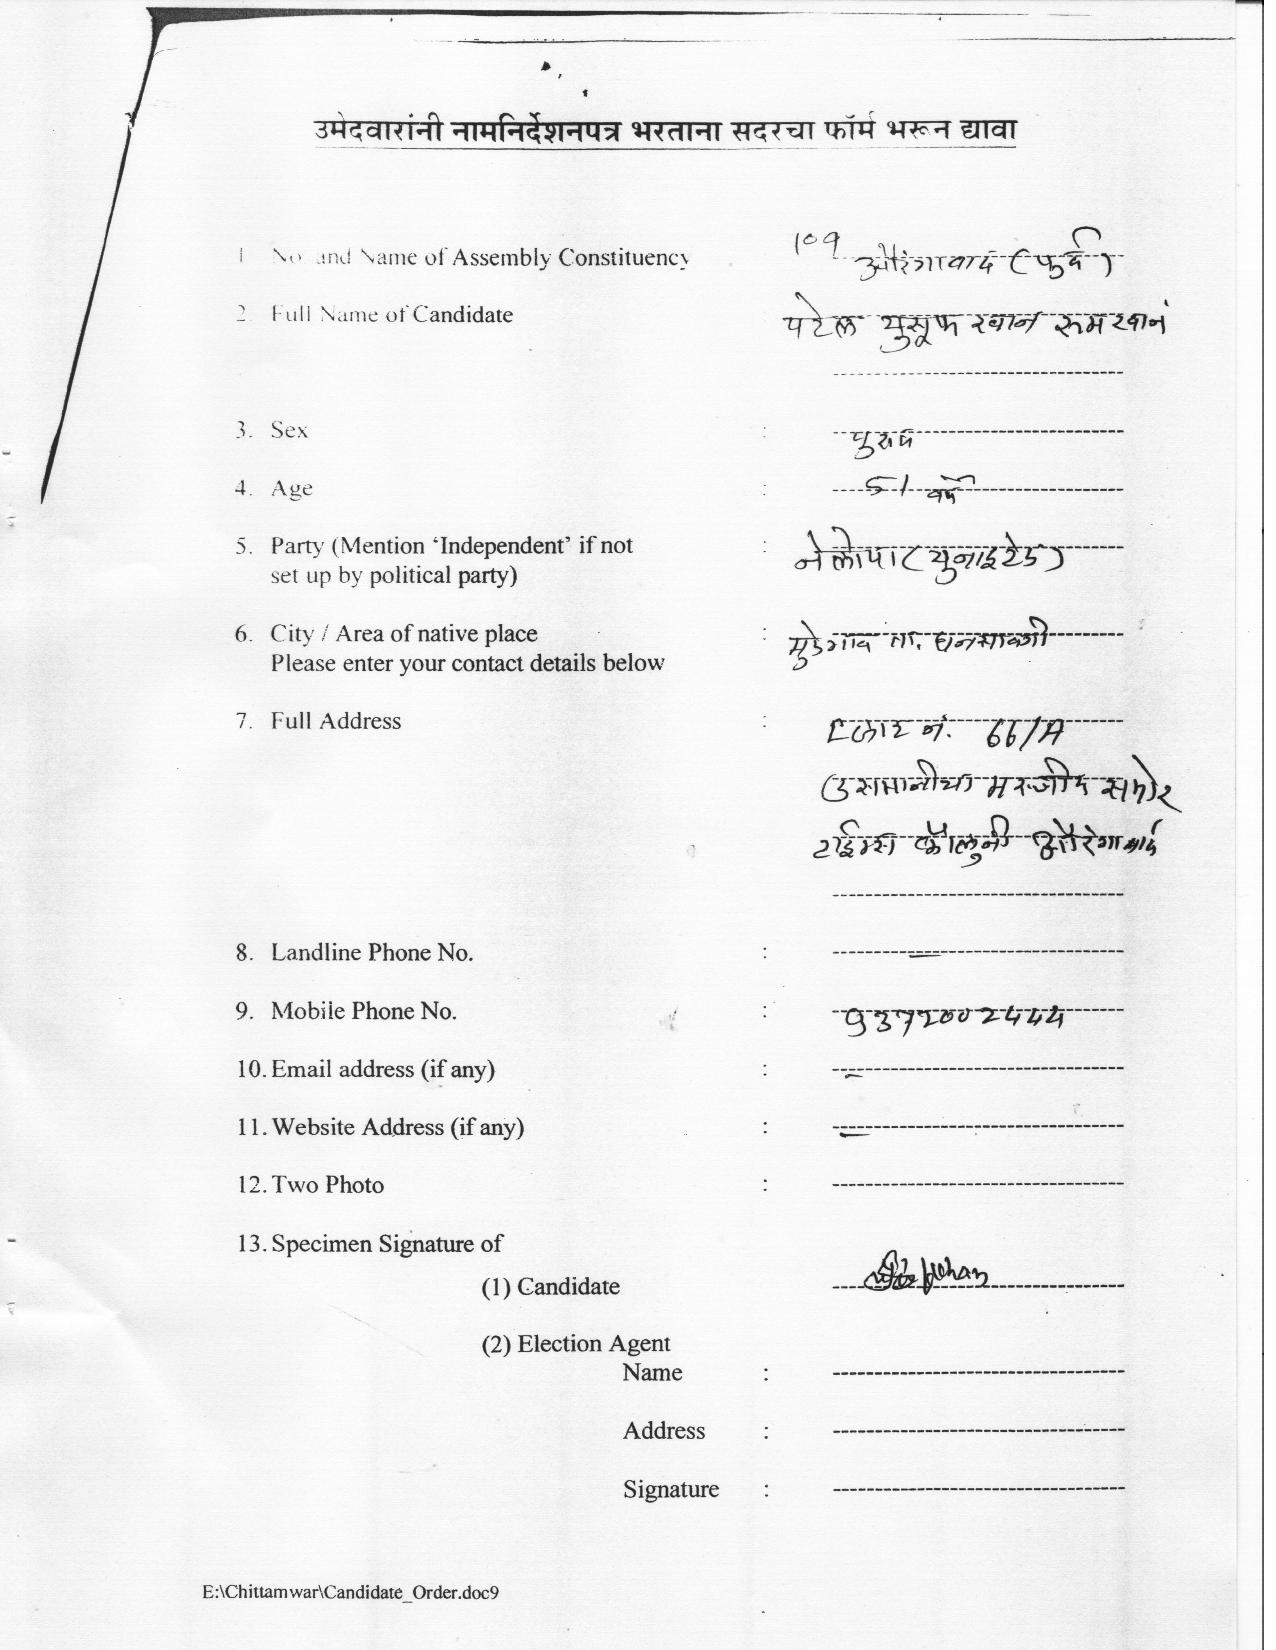 उमेदवारांनी नामनिर्देशनपत्र भरताना सदरचा फॉर्म भरून द्यावा
1 No and Name of Assembly Constituency 109 औरंगाबाद (पुर्व)
2. Full Name of Candidate पटेल युसूफ खान रूमखान
3. Sex : पुरुष
4. Age : 51 वर्ष
5. Party (Mention ‘Independent’ if not : (युनाइटेड)
set up by political party)
6. City / Area of native place : ता. घनसावंगी
Please enter your contact details below
7. Full Address : नं. 66/A
उसमानीया मस्जीद समोर
टाईम्स कॉलुनी औरंगाबाद
8. Landline Phone No. : —
9. Mobile Phone No. : 9372002444
10. Email address (if any) : —
11. Website Address (if any) : —
12. Two Photo :
13. Specimen Signature of
(1) Candidate
(2) Election Agent
Name :
Address :
Signature :
E:\Chittamwar\Candidate_Order.doc9